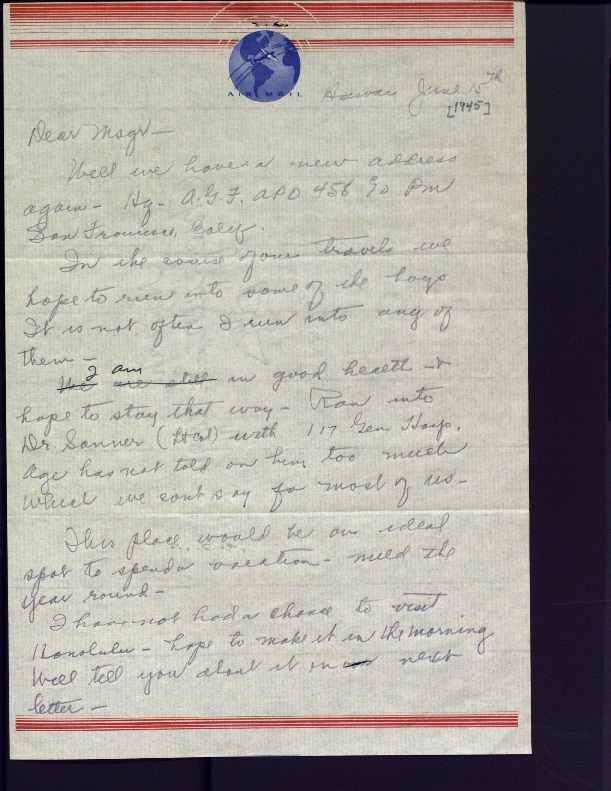 AIR MAIL
Hawaii June 15th
[1945]
Dear Msgr —
Well we have a new address
again - Hq - A.G.F. APO 458 % PM
San Francisco, Calif.
In the course of our travels we
hope to run into some of the boys
It is not often I run into any of
them —
I am
We are still in good health - &
hope to stay that way - Ran into
Dr Sanner (Lt Col) with 117 Gen Hosp.
Age has not told on him too much
Which we cant say for most of us -
This place would be an ideal
spot to spend a vacation - mild the
year round -
I have not had a chance to visit
Honolulu - hope to make it in the morning
Will tell you about it in next
letter —